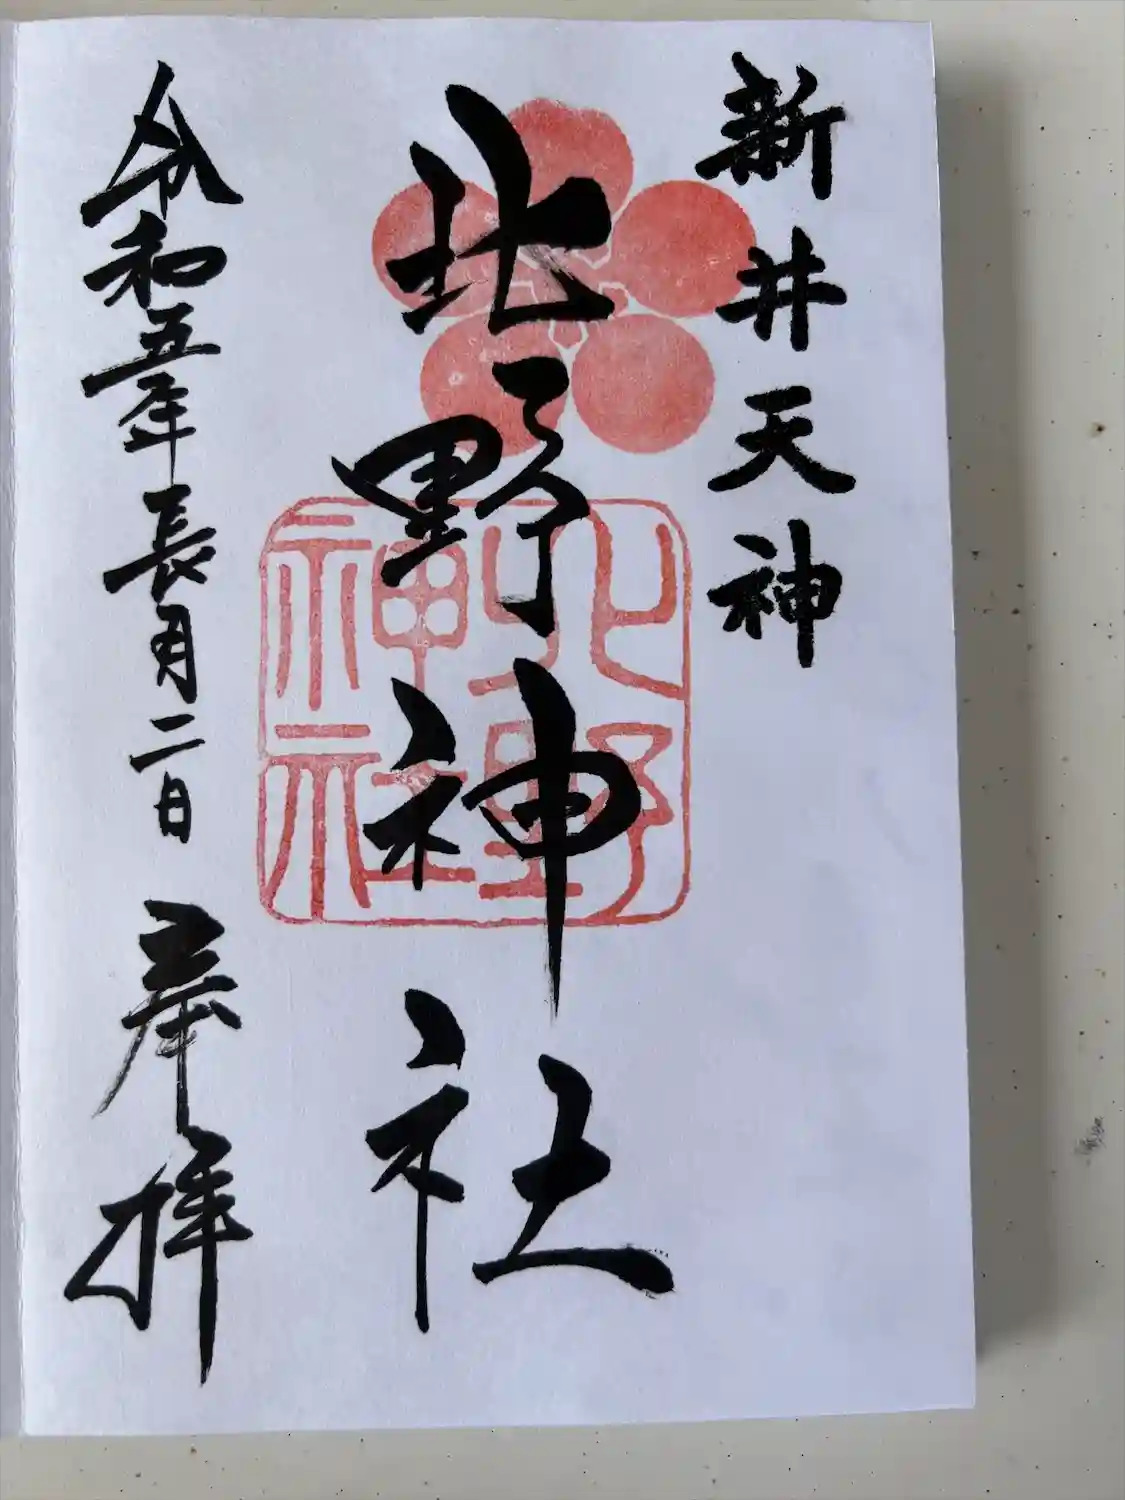 新井天神
北野神社
北野神社
令和五年長月二日 奉拝